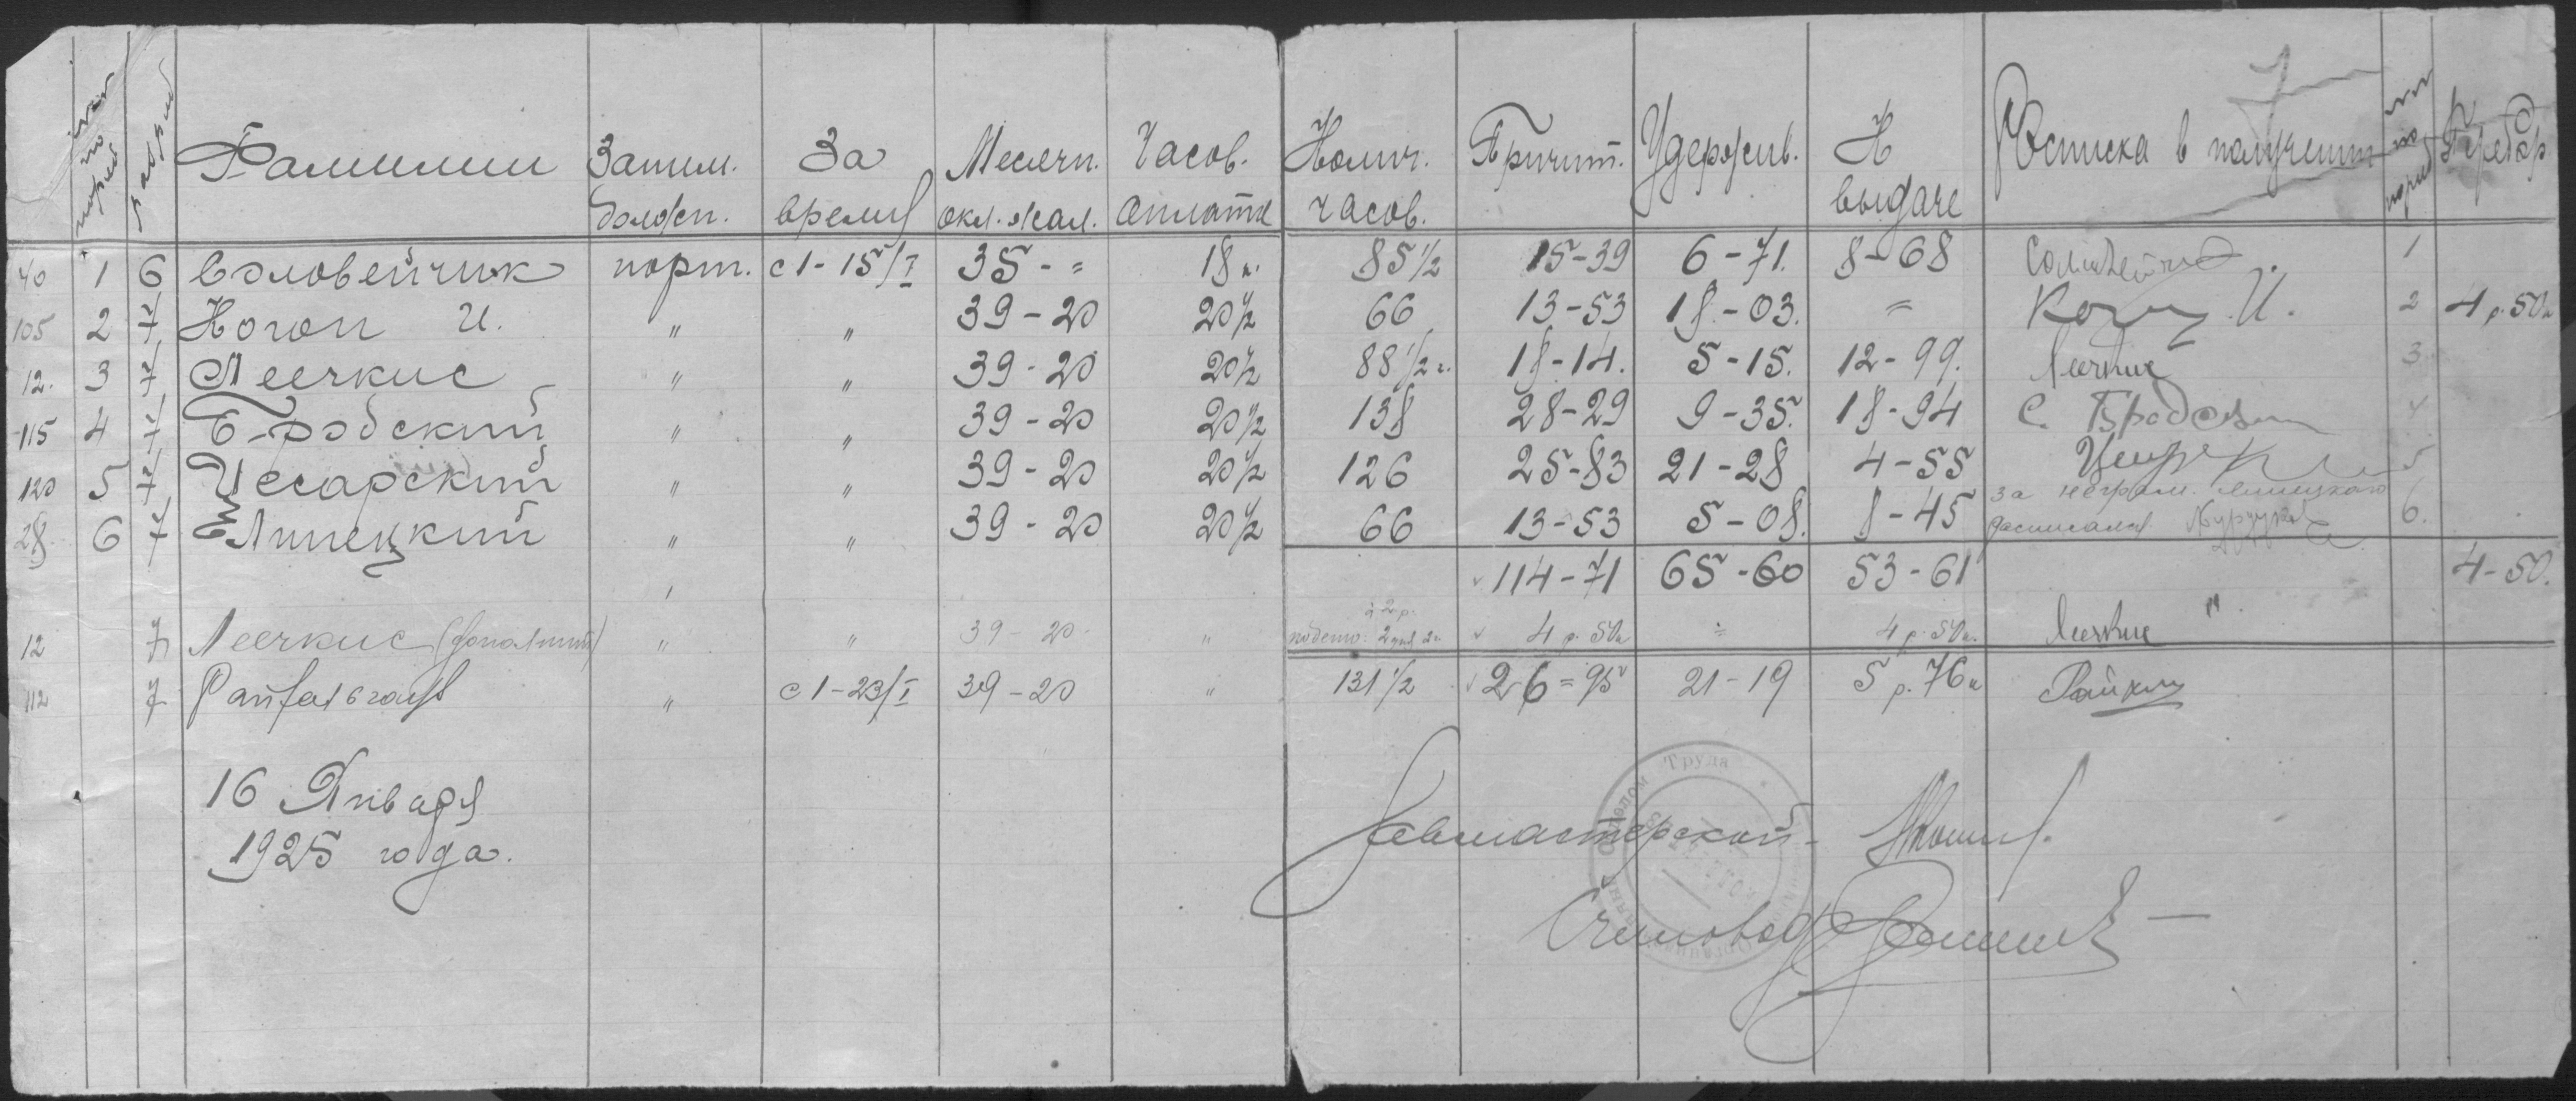 №№ по поряд. Разряд Фамилии Заним. должн. За время Месячн. окл. жал. Часов. оплата Колич. часов. Причит. Удержив. К выдаче Росписка в получении №№ по поряд. Перебор
40 1 6 Соловейчик порт. с 1-15/I 35-= 18 к. 85 1/2 15-39 6-71. 8-68 Соловейчик. 1
105 2 7 Когон И. " " 39-20 20 1/2 66 13-53 18-03. = Коган И. 2 4 р. 50 к
12. 3 7 Леечкис " " 39-20 20 1/2 88 1/2 ч. 18-14. 5-15. 12-99. Леечкис 3
115 4 7 Бродский " " 39-20 20 1/2 138 28-29 9-35. 18-94 С. Бродский 4
120 5 7 Цесарский " " 39-20 20 1/2 126 25-83 21-28 4-55 5
28 6 7 Липецкий " " 39-20 20 1/2 66 13-53 5-08. 8-45 за неграм. Липецкого расписался 6.
114-71 65-60 53-61 4-50.
12 7 Леечкис (дополнит) " " 39-20 " 4 р. 50 к = 4 р. 50 к. Леечкис
112 7 " с 1-23/I 39-20 " 131 1/2 26=95 21-19 5 р. 76 к
16 Января
1925 года.
Завмастерской
Счетовод
Труда